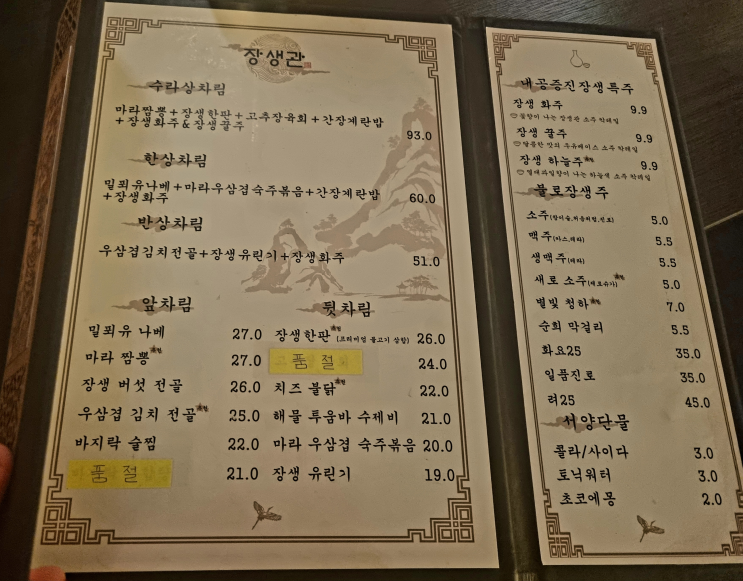 장생관
수라상차림
마라짬뽕+장생한판+고추장육회+간장계란밥
+장생화주&장생꿀주
93.0
한상차림
밀푀유나베+마라우삼겹숙주볶음+간장계란밥
+장생화주
60.0
반상차림
우삼겹김치전골+장생유린기+장생화주
51.0
앞차림
밀푀유 나베 27.0
마라 짬뽕 27.0
장생 버섯 전골 26.0
우삼겹 김치 전골 25.0
바지락 술찜 22.0
품절 21.0
뒷차림
장생한판 (프리미엄 불고기 삼합) 26.0
품절 24.0
치즈 불닭 22.0
해물 투움바 수제비 21.0
마라 우삼겹 숙주볶음 20.0
장생 유린기 19.0
내공증진장생특주
장생 화주 9.9
꽃향이 나는 장생관 소주 칵테일
장생 꿀주 9.9
달콤한 맛의 우유베이스 소주 칵테일
장생 하늘주 9.9
열대과일향이 나는 하늘색 소주 칵테일
불로장생주
소주(참이슬,처음처럼,진로) 5.0
맥주(카스,테라) 5.5
생맥주(테라) 5.5
새로 소주(제로슈가) 5.0
별빛 청하 7.0
순희 막걸리 5.5
화요25 35.0
일품진로 35.0
려25 45.0
서양단물
콜라/사이다 3.0
토닉워터 3.0
초코에몽 2.0